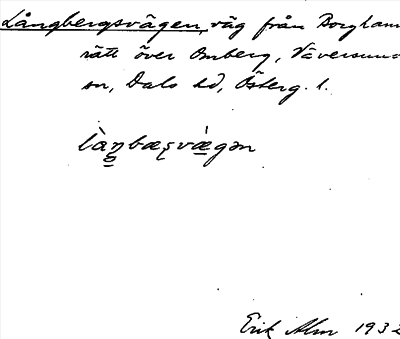 Långbergsvägen, väg från Borgham
rätt över Omberg, Väversund
sn, Dals hd, Österg. l.
làŋbæʂvæ̀gən
Erik Alm 1932